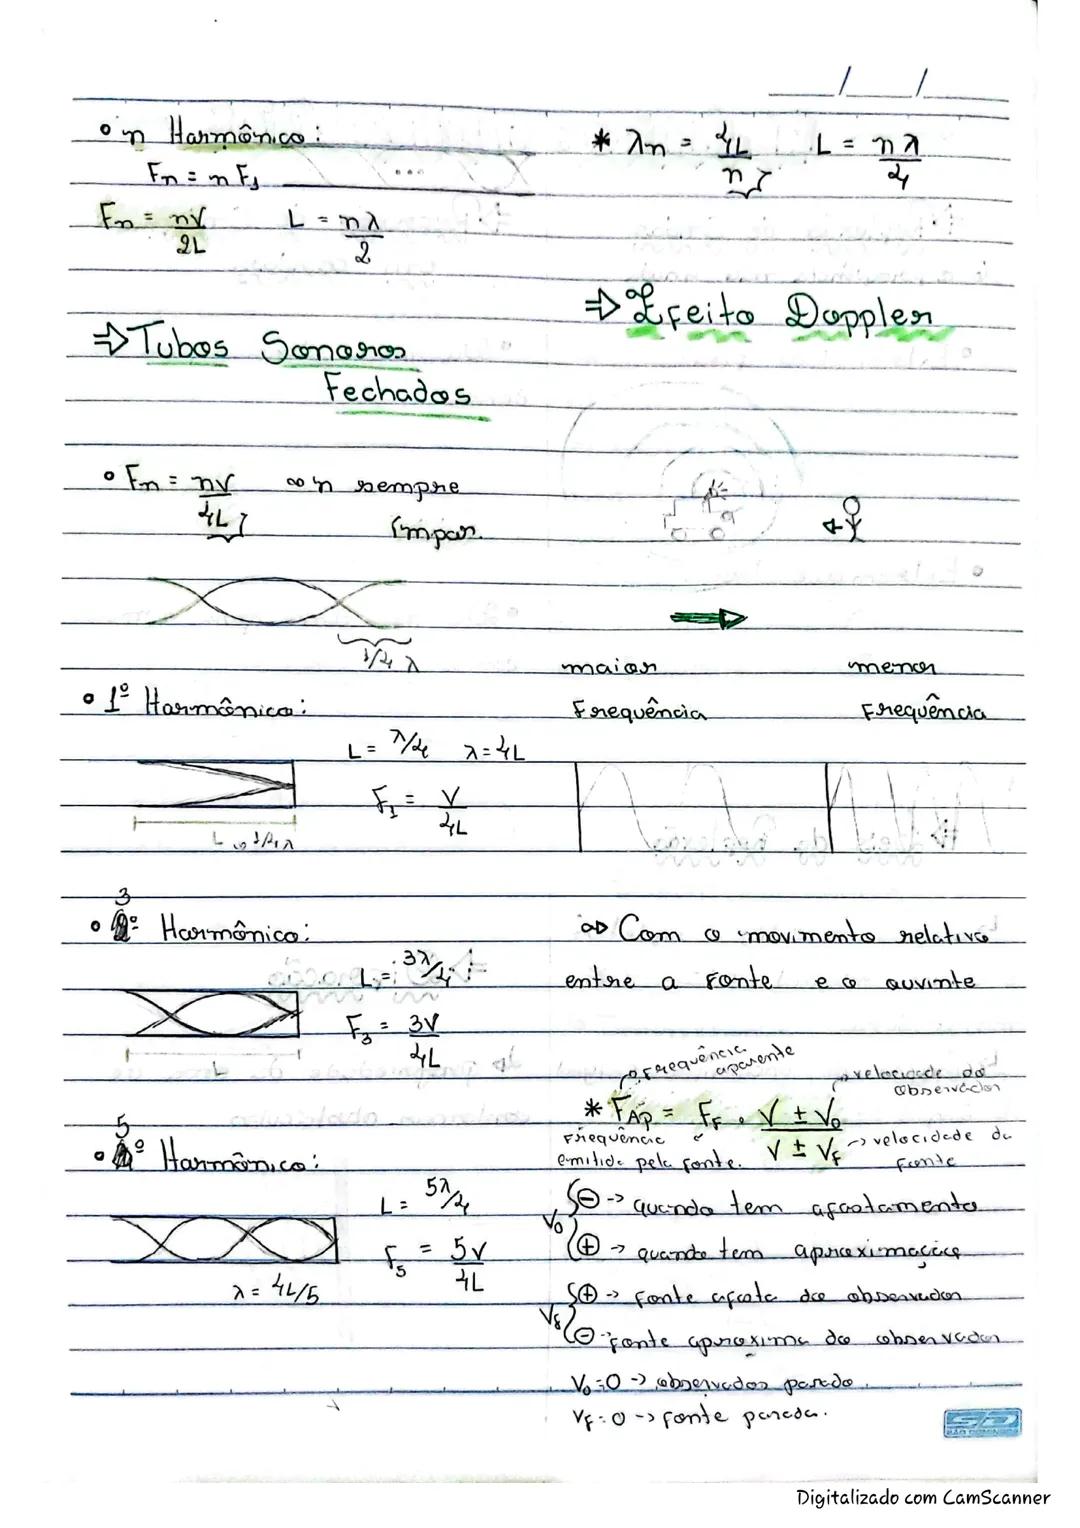 __/__/__
• n Harmônico:
Fn = n F1
Fn = nv/2L   L = nλ/2
⇒ Tubos Sonoros
Fechados
• Fn = nv/4L   ∞ n sempre
ímpar.
1/4 λ
• 1º Harmônico:
L = λ/4   λ = 4L
F1 = V/4L
L → 1/4 λ
• 3º Harmônico:
L = 3λ/4
F3 = 3V/4L
L
• 5º Harmônico:
L = 5λ/4
F5 = 5V/4L
λ = 4L/5
* λn = 4L/n   L = nλ/4
⇒ Efeito Doppler
maior   menor
Frequência   Frequência
→ Com o movimento relativo
entre a fonte e o ouvinte
→ Frequência aparente
→ velocidade do observador
* FAP = FF . V ± Vo / V ± VF → velocidade da fonte
Frequência
emitida pela fonte.
Vo { ⊖ → quando tem afastamento
⊕ → quando tem aproximação
Vf { ⊕ → fonte afasta do observador
⊖ → fonte aproxima do observador
Vo = 0 → observador parado
VF = 0 → fonte parada.
SD
SÃO DOMINGOS
Digitalizado com CamScanner